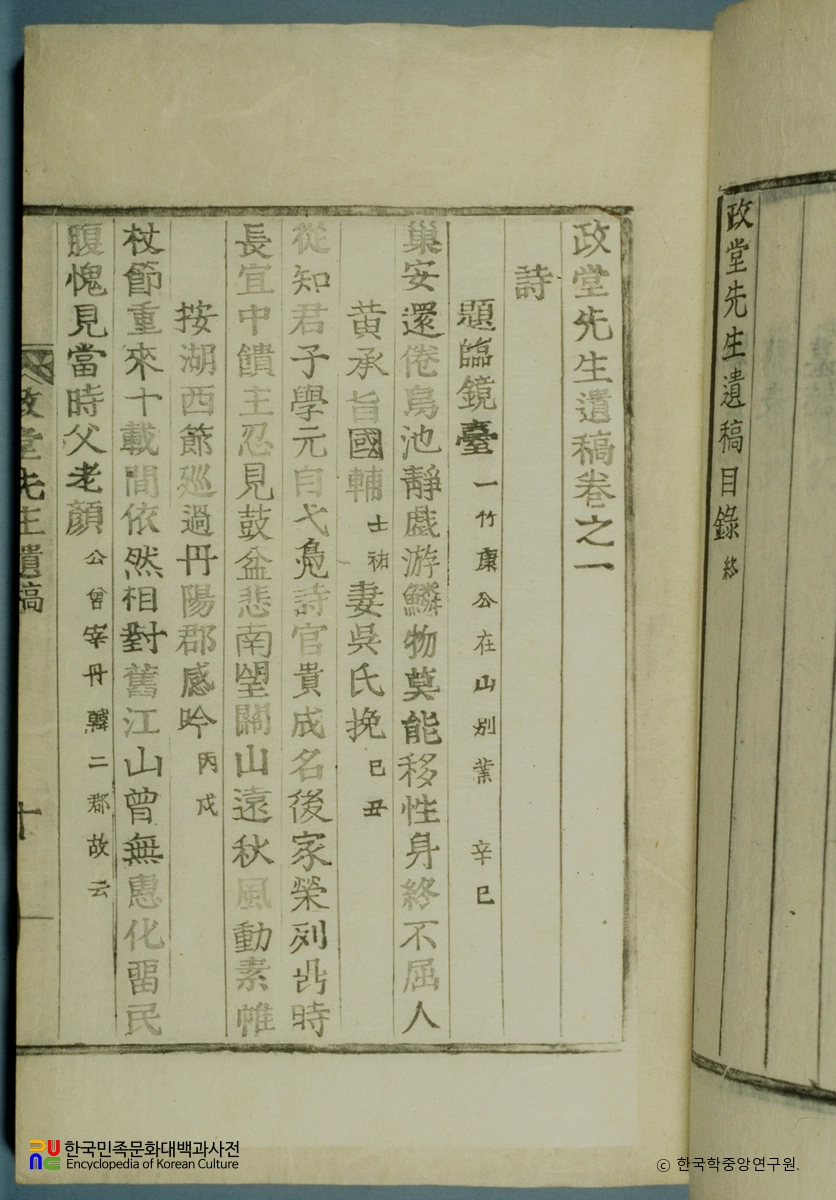 政堂先生遺稿目錄 終
政堂先生遺稿卷之一
詩
題臨鏡臺 一竹康公在山別業 辛巳
巢安還倦鳥池靜戱游鱗物莫能移性身終不屈人
黃承旨國輔 士祐 妻吳氏挽 己丑
從知君子學元自弋鳧詩官貴成名後家榮列時
長宜中饋主忍見鼓盆悲南望關山遠秋風動素帷
按湖西節廵過丹陽郡感吟 丙戌
杖節重來十載間依然相對舊江山曾無惠化留民
腹愧見當時父老顏 公曾宰丹 二郡故云
政堂先生遺稿
十
한국민족문화대백과사전
Encyclopedia of Korean Culture
ⓒ 한국학중앙연구원.